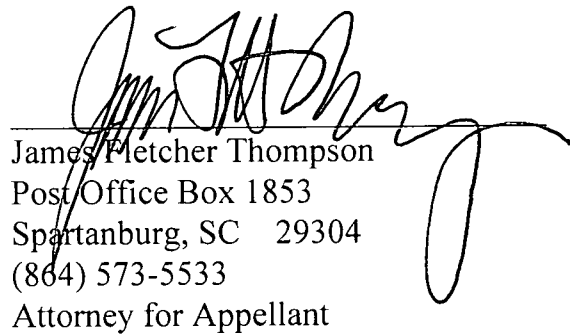 James Fletcher Thompson
Post Office Box 1853
Spartanburg, SC 29304
(864) 573-5533
Attorney for Appellant